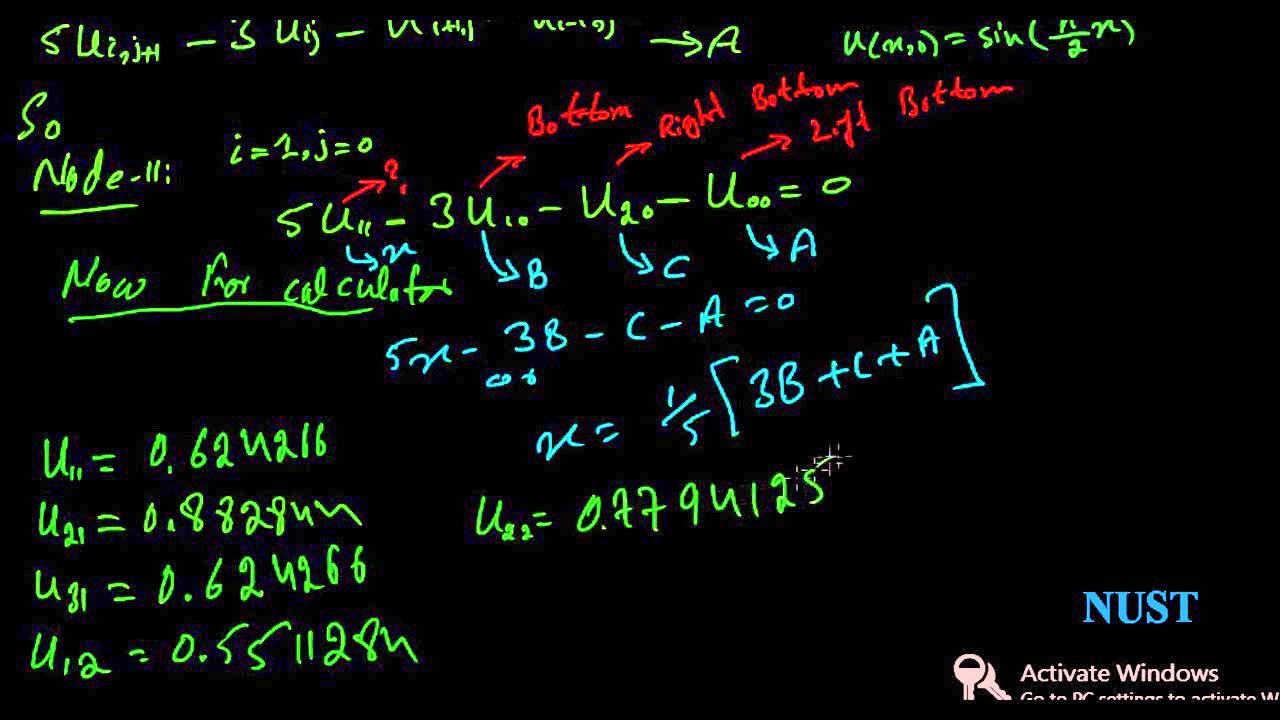 5U i,j+1 − 3 U ij − U i+1,j − U i−1,j → A
u(x,0) = sin(π/2 x)
So
Node-11:
i=1, j=0
?
Bottom
Right Bottom
Left Bottom
5U11 − 3U10 − U20 − U00 = 0
x
B
C
A
Now For calculator
5x − 3B − C − A = 0
or
x = 1/5 [3B + C + A]
U11 = 0.624266
U21 = 0.882844
U31 = 0.624266
U12 = 0.5511284
U22 = 0.7794125
NUST
Activate Windows
Go to PC settings to activate W